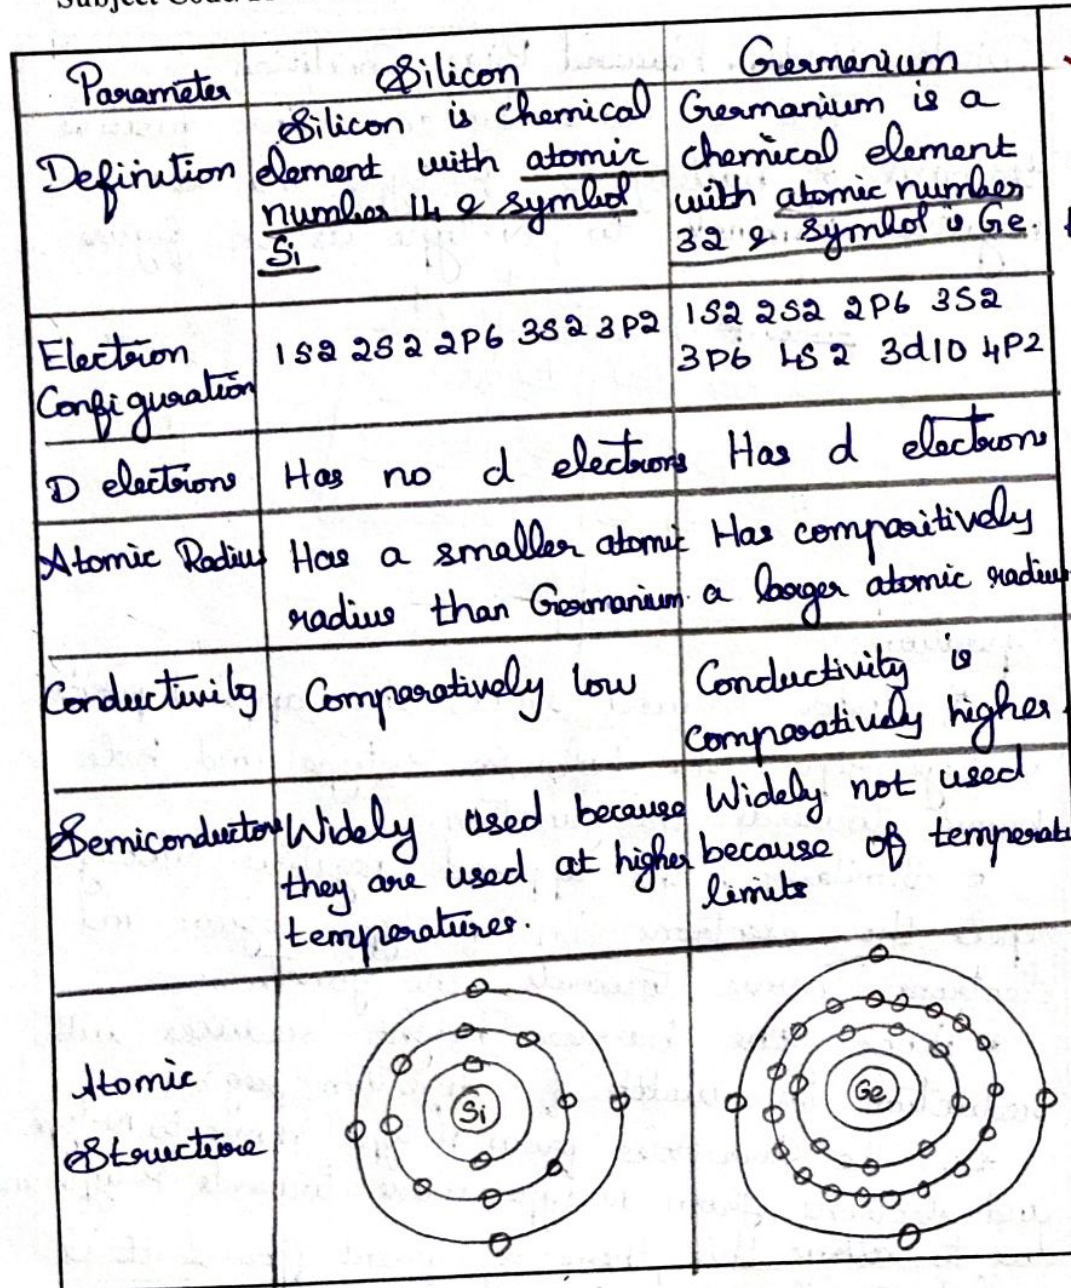 Parameter Silicon Germanium
Definition
Silicon is chemical
element with atomic
number 14 & symbol
Si
Germanium is a
chemical element
with atomic number
32 & symbol is Ge.
Electron
Configuration
1S2 2S2 2P6 3S2 3P2
1S2 2S2 2P6 3S2
3P6 4S2 3d10 4P2
D electrons
Has no d electrons
Has d electrons
Atomic Radius
Has a smaller atomic
radius than Germanium
Has comparitively
a larger atomic radius
Conductivity
Comparatively low
Conductivity is
comparatively higher.
Semiconductors
Widely used because
they are used at higher
temperatures.
Widely not used
because of temperat
limits
Atomic
Structure
Si
Ge